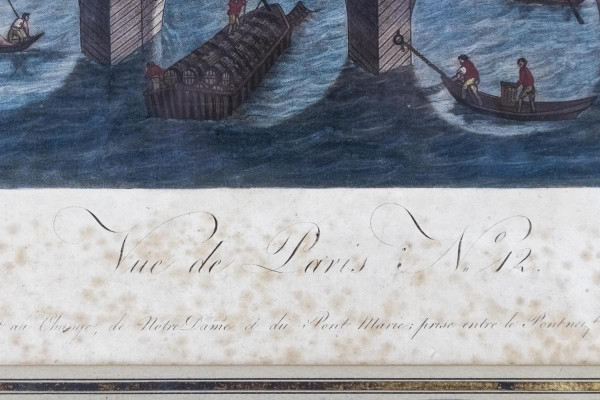 Vue de Paris : No 12.
au Change, de Notre Dame & du Pont Marie; prise entre le Pontneuf